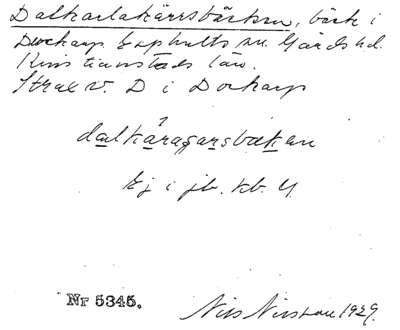 Dalkarlakärrsbäcken, bäck i
Dockarp Explults sn. Gärds hd.
Kristianstads län.
Strax v. D i Dockarp
dalkåragarsbækan
Ej i jb. kb. U
Nr 5345.
Nils Nilsson 1929.